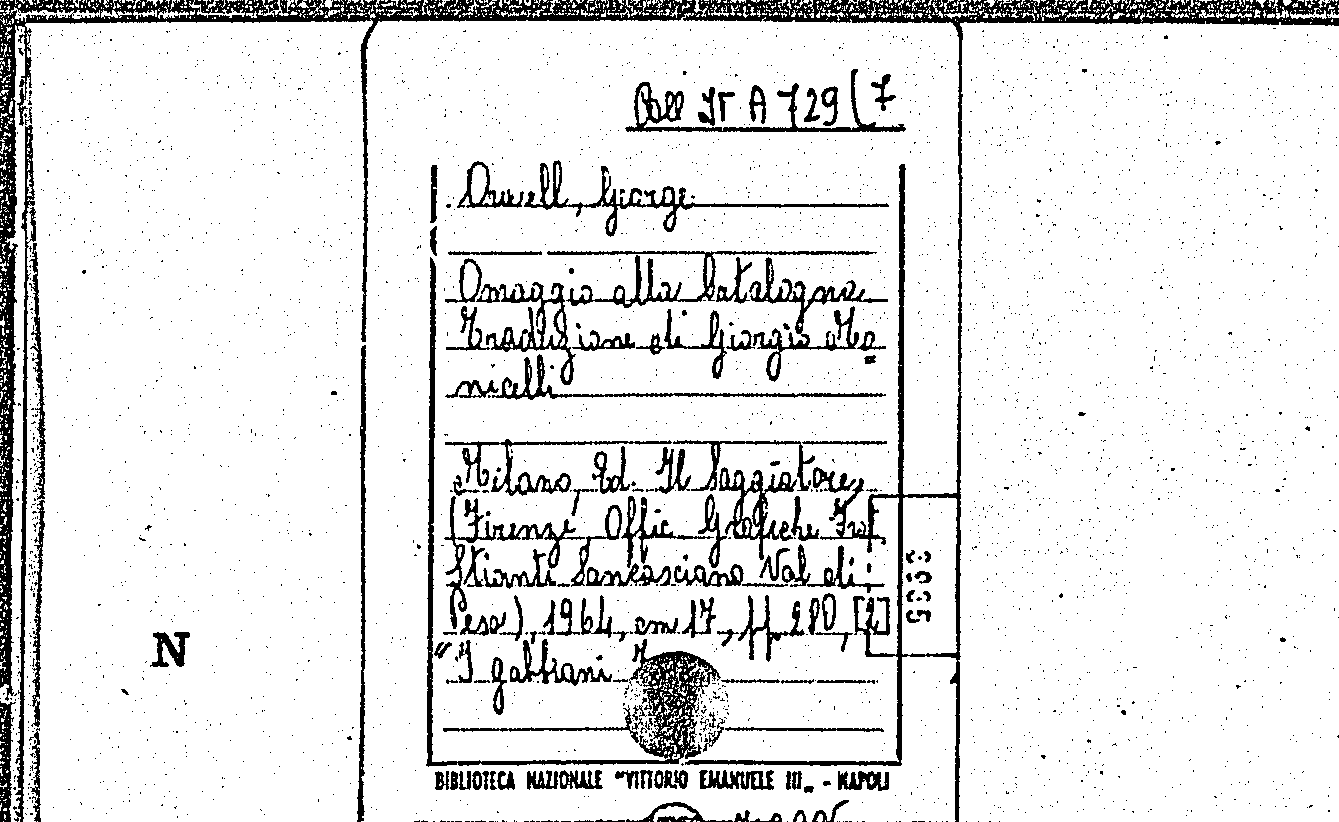 Coll It A 729 (7
Orwell, George
Omaggio alla Catalogna.
Traduzione di Giorgio Mo
nicelli
Milano, Ed. Il Saggiatore,
(Firenze, Offic Grafiche Frat.
Stianti Sancasciano Val di
Pesa), 1964, cm 17, pp. 280, [2]
"I gabbiani
3635
N
BIBLIOTECA NAZIONALE "VITTORIO EMANUELE III„ - NAPOLI